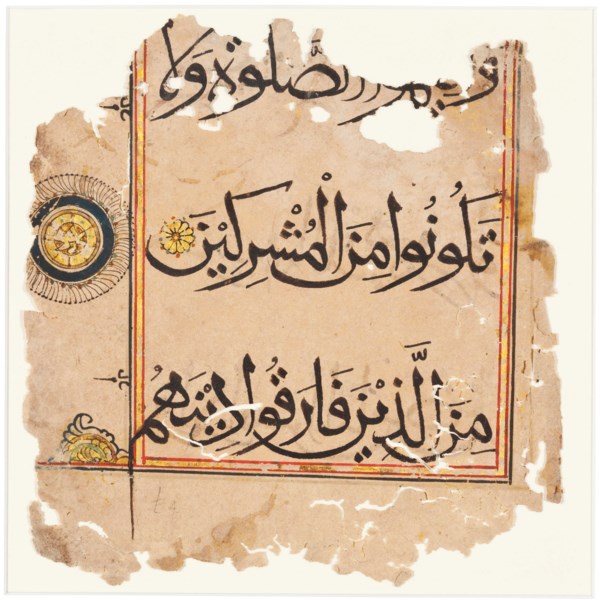 الصَّلوٰةَ وَلَا
تَكُونُوا مِنَ الْمُشْرِكِيْنَ
مِنَ الَّذِيْنَ فَارَقُوا دِيْنَهُمْ